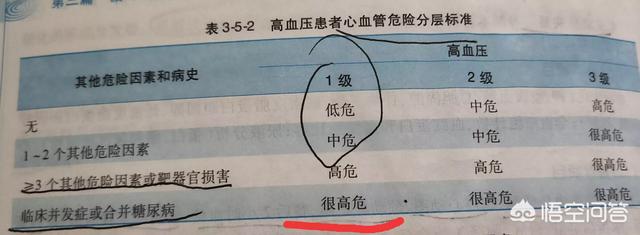 第二篇
表 3-5-2 高血压患者心血管危险分层标准
其他危险因素和病史 高血压
1 级 2 级 3 级
无 低危 中危 高危
1~2 个其他危险因素 中危 中危 很高危
≥3 个其他危险因素或靶器官损害 高危 高危 很高危
临床并发症或合并糖尿病 很高危 很高危 很高危
悟空问答